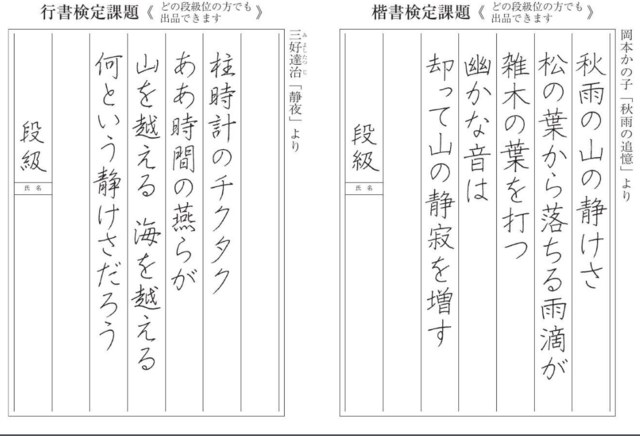 楷書検定課題《どの段級位の方でも出品できます》
岡本かの子「秋雨の追憶」より
秋雨の山の静けさ
松の葉から落ちる雨滴が
雑木の葉を打つ
幽かな音は
却って山の静寂を増す
段級
氏名
行書検定課題《どの段級位の方でも出品できます》
三好達治「静夜」より
みよしたつじ
柱時計のチクタク
ああ時間の燕らが
山を越える 海を越える
何という静けさだろう
段級
氏名